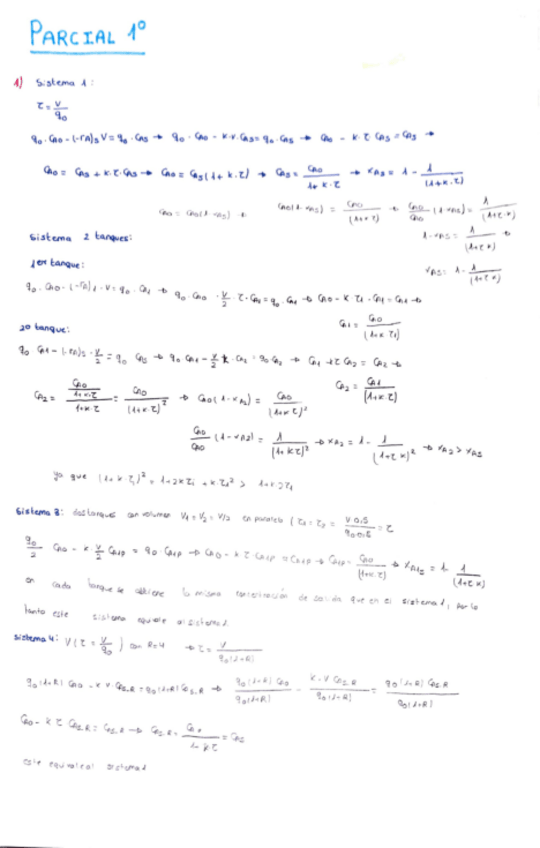 PARCIAL 1º
1) Sistema 1:
τ = V/q₀
q₀·C_A0 - (-r_A)_S V = q₀·C_AS → q₀·C_A0 - K·V·C_AS = q₀·C_AS → C_A0 - K·τ C_AS = C_AS →
C_A0 = C_AS + K·τ·C_AS → C_A0 = C_AS (1+K·τ) → C_AS = C_A0/(1+K·τ) → X_AS = 1 - 1/(1+K·τ)
C_A0(1-X_AS) = C_A0/(1+τ) → C_A0/C_A0 (1-X_AS) = 1/(1+τ·K)
1-X_AS = 1/(1+τK) →
Sistema 2 tanques:
X_AS = 1 - 1/(1+τK)
1er tanque:
q₀·C_A0 - (-r_A)₁·V = q₀·C_A1 → q₀·C_A0 · V/2 · τ·C_A1 = q₀·C_A1 → C_A0 - K τ₁·C_A1 = C_A1 →
C_A1 = C_A0/(1+K τ₁)
2o tanque:
q₀ C_A1 - (-r_A)₂·V/2 = q₀ C_AS → q₀ C_A1 - V/2 K·C_A2 = q₀ C_A2 → C_A1 + K τ C_A2 = C_A2 →
C_A2 = (C_A0/(1+K·τ))/(1+K·τ) = C_A0/(1+K·τ)² → C_A0(1-X_A2) = C_A0/(1+Kτ)²
C_A2 = C_A1/(1+K·τ)
C_A0/C_A0 (1-X_A2) = 1/(1+Kτ)² → X_A2 = 1 - 1/(1+τK)² → X_A2 > X_AS
ya que (1+K τ)² = 1+2Kτ₁ + K·τ₁² > 1+Kτ₁
Sistema 3: dos tanques con volumen V₁=V₂=V/2 en paralelo (τ₁=τ₂ = V·0,5/q₀·0,5 = τ
q₀/2 C_A0 - K V/2 C_A1P = q₀·C_A1P → C_A0 - K τ C_A1P = C_A1P → C_A1P = C_A0/(1+Kτ) → X_A1S = 1 - 1/(1+τK)
en cada tanque se obtiene la misma concentración de salida que en el sistema 1, por lo
tanto este sistema equivale al sistema 1.
Sistema 4: V (τ = V/q₀) con R=4 → τ = V/q₀(1+R)
q₀(1+R) C_A0 - K V C_AS,R = q₀(1+R) C_AS,R → q₀(1+R) C_A0/q₀(1+R) - K·V C_AS,R/q₀(1+R) = q₀(1+R) C_AS,R/q₀(1+R)
C_A0 - K τ C_AS,R = C_AS,R → C_AS,R = C_A0/(1+Kτ) = C_AS
este equivale al sistema 1